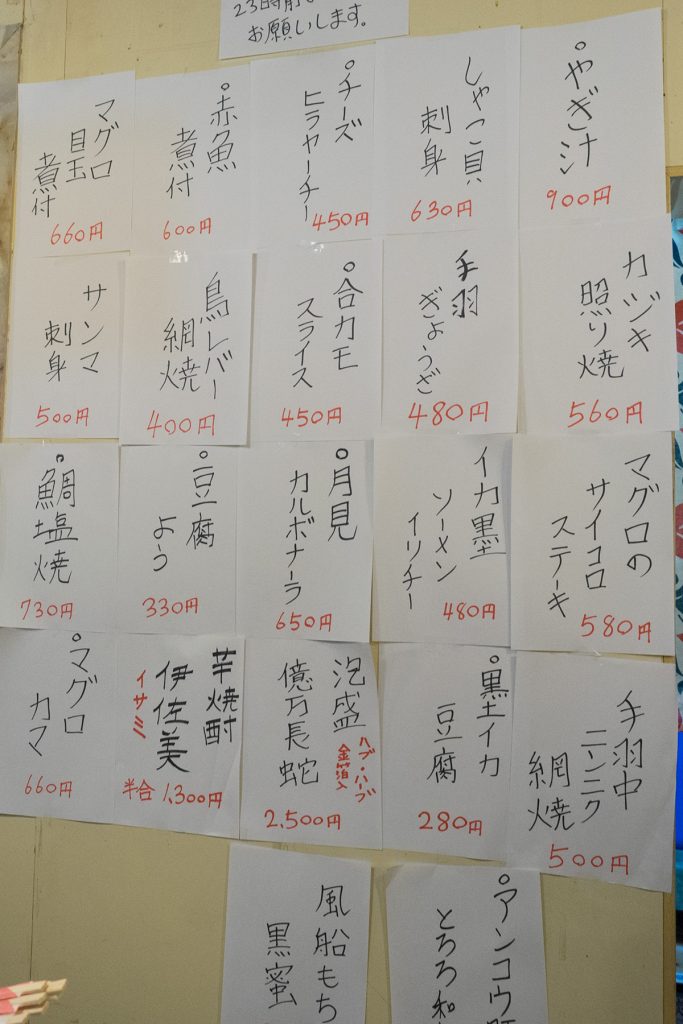 お願いします。
○やぎ汁
900円
しゃこ貝
刺身
630円
○チーズ
ヒラヤーチー
450円
○赤魚
煮付
600円
マグロ
目玉
煮付
660円
カジキ
照り焼
560円
手羽
ぎょうざ
480円
○合カモ
スライス
450円
鳥レバー
網焼
400円
サンマ
刺身
500円
マグロの
サイコロ
ステーキ
580円
イカ墨
ソーメン
イリチー
480円
○月見
カルボナーラ
650円
○豆腐
よう
330円
○鯛塩焼
730円
手羽中
ニンニク
網焼
500円
○黒イカ
豆腐
280円
泡盛
ハブ・ハーブ
金箔入
億万長蛇
2,500円
芋焼酎
伊佐美
イサミ
半合 1,300円
○マグロ
カマ
660円
○アンコウ
とろろ和
風船もち
黒蜜